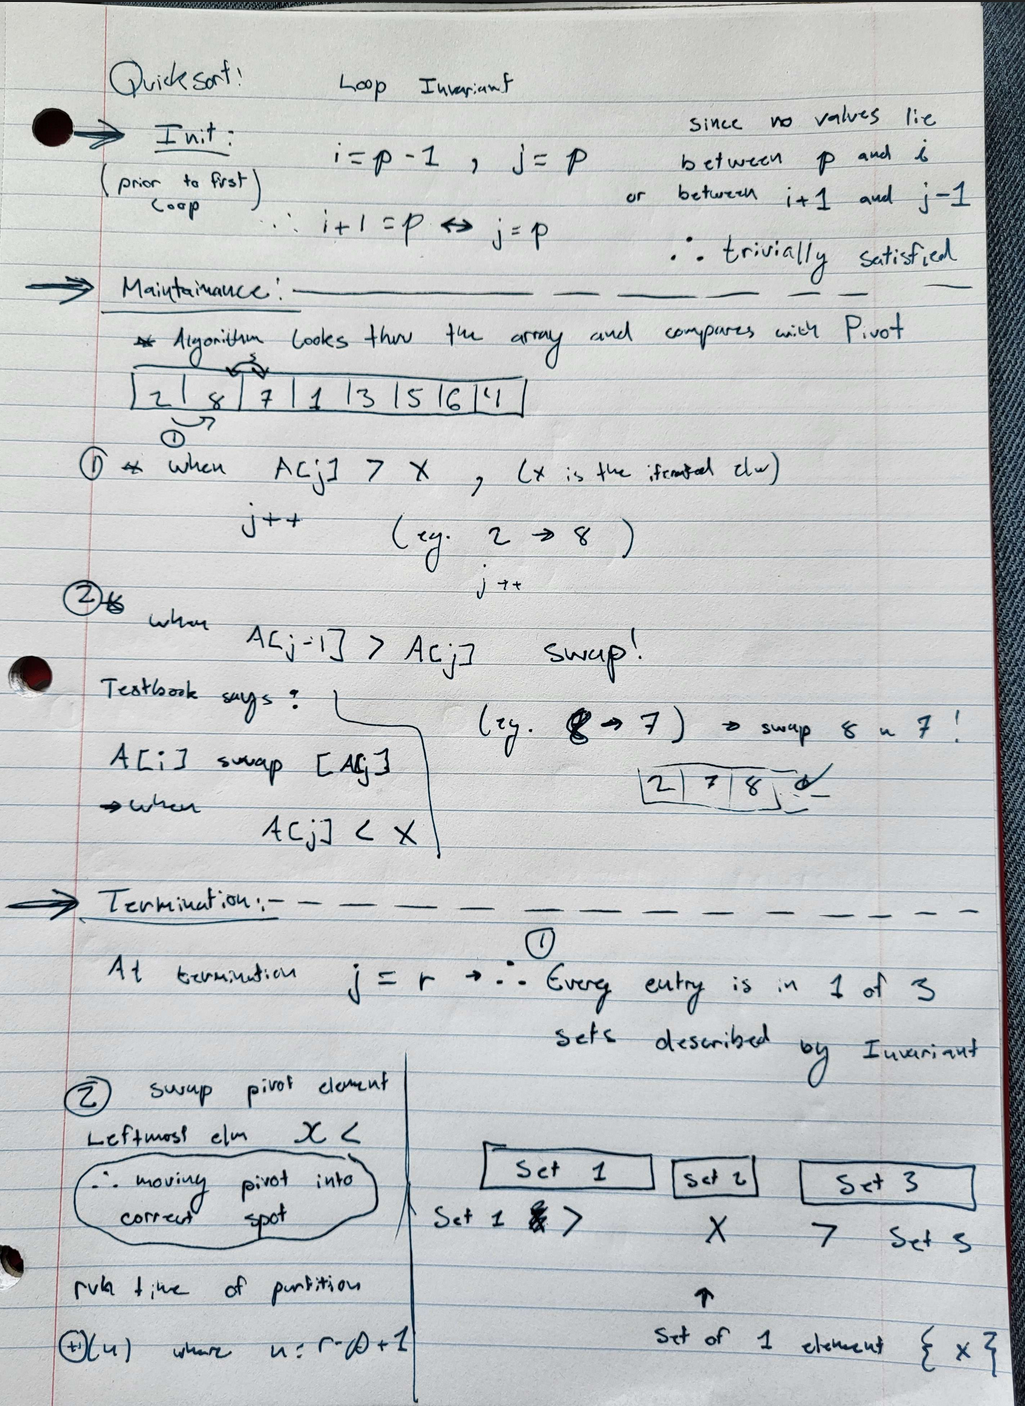 Quicksort! Loop Invariant
Init:
(prior to first loop)
i = p - 1 , j = p
∴ i+1 = p ↔ j = p
since no values lie
between p and i
or between i+1 and j-1
∴ trivially satisfied
Maintainance:
* Algorithm looks thru the array and compares with Pivot
2 | 8 | 7 | 1 | 3 | 5 | 6 | 4
①
① * when A[j] > X , (x is the iterated elm)
j++ (eg. 2 → 8 )
j++
② when
A[j-1] > A[j] swap!
Textbook says:
A[i] swap [A[j]
→ when
A[j] < X
(eg. 8 → 7) → swap 8 n 7 !
2 | 7 | 8
Termination:
At termination j = r → ∴ ① Every entry is in 1 of 3
sets described by Invariant
② swap pivot element
Leftmost elm x <
∴ moving pivot into
correct spot
run time of partition
Θ(n) where n = r-p+1
Set 1 Set 2 Set 3
Set 1 > X > Set 3
↑
Set of 1 element { x }